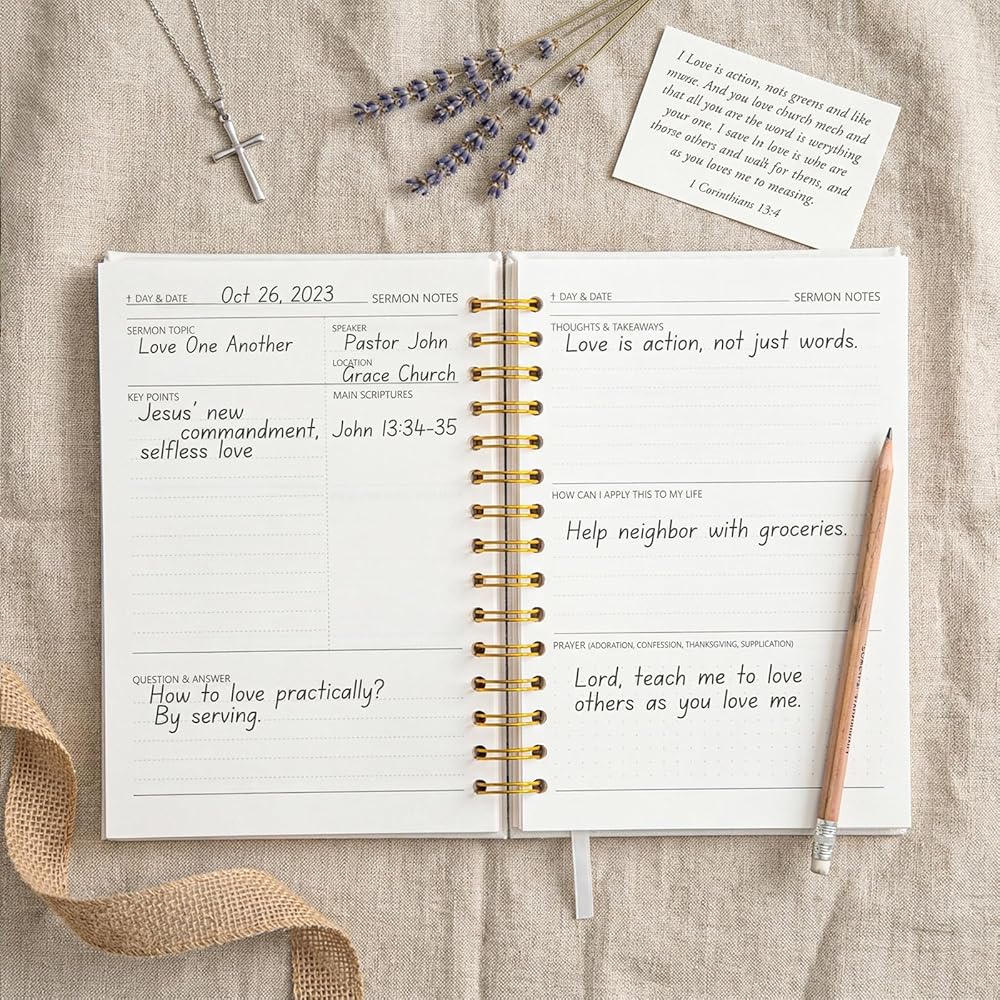 I Love is action, nots greens and like
murse. And you love church mech and
that all you are the word is werything
your one. I save In love is who are
thorse others and wait for thens, and
as you loves me to measing.
1 Corinthians 13:4
† DAY & DATE Oct 26, 2023 SERMON NOTES
SERMON TOPIC
Love One Another
SPEAKER
Pastor John
LOCATION
Grace Church
KEY POINTS
Jesus' new
commandment,
selfless love
MAIN SCRIPTURES
John 13:34-35
QUESTION & ANSWER
How to love practically?
By serving.
† DAY & DATE SERMON NOTES
THOUGHTS & TAKEAWAYS
Love is action, not just words.
HOW CAN I APPLY THIS TO MY LIFE
Help neighbor with groceries.
PRAYER (ADORATION, CONFESSION, THANKSGIVING, SUPPLICATION)
Lord, teach me to love
others as you love me.